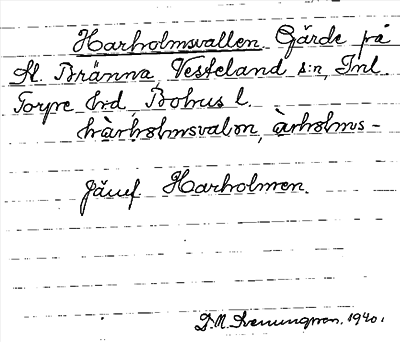 Harholmsvallen. Gärde på
St. Bränna, Vesteland s:n, Inl.
Torpe hrd, Bohus l.
hàrholmsvalən, àrholms-
Jämf. Harholmen.
D. M. Svenungsson. 1940.